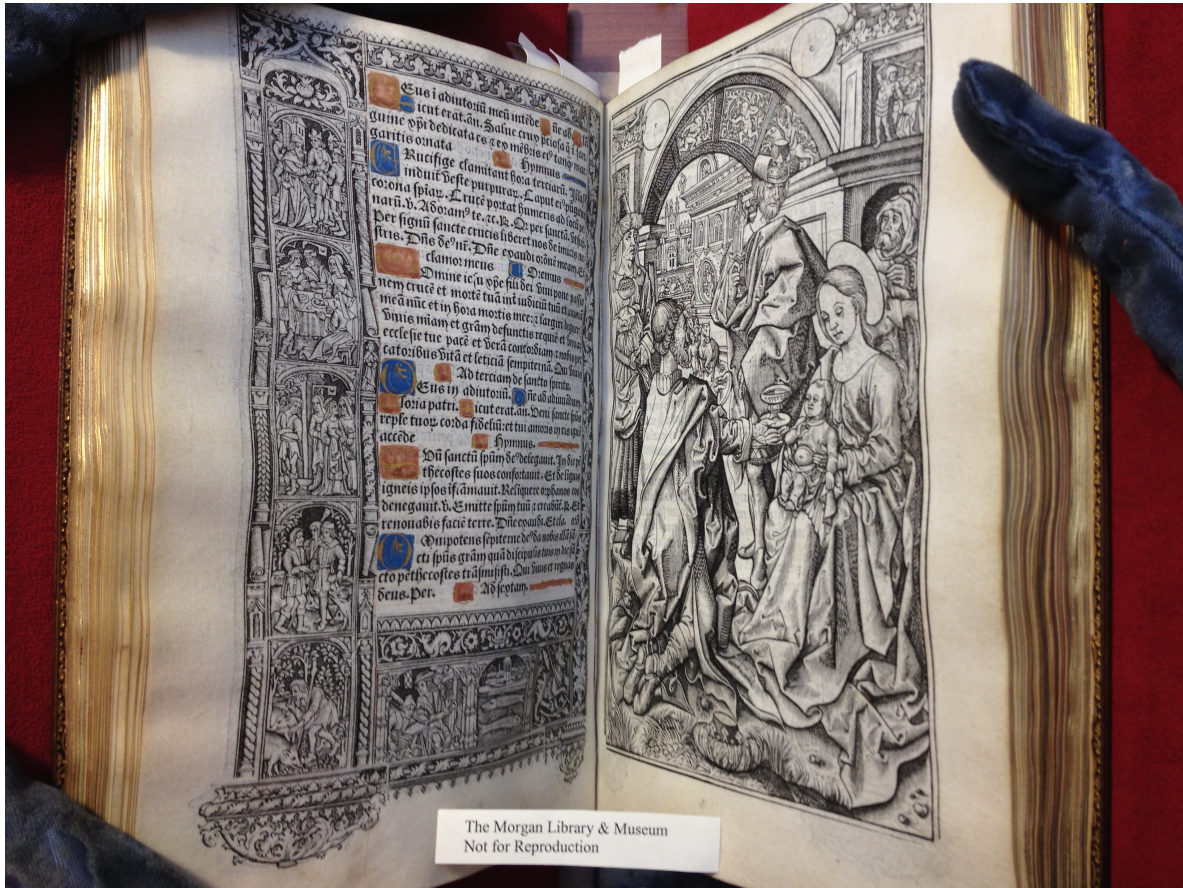 Eus ī adiutoriū meū intēde ne ad
icut erat. añ. Salue crux p̄ciosa q̄ ī san
guine xp̄i dedicata es ⁊ ex mēbris eiꝰ tanq̄ mar
garitis ornata Hymnus
Rucifige clamitant hora terciarū.
induit̄ veste purpuraꝝ. Caput eiꝰ pūgit̄
corona spiaꝝ. Crucē portat humeris ad loca
narū. v. Adoramꝰ te. ⁊c. R. Q̄ per sanctā.
Per signū sancte crucis liberet nos de inimicis no
stris. Dn̄s deꝰ nr̄. Dn̄e exaudi orōnē meam. Et
clamor meus Oremus
Omine iesu xp̄e fili dei viui pone passio
nem crucē et mortē tuā int̄ iudiciū tuū et animā
meā nūc et in hora mortis mee: ⁊ largiri digner
viuis miam et grām defunctis requiē et veniā
ecclesie tue pacē et verā concordiam ⁊ nobis pec
catoribus vitā et leticiā sempiternā. Qui viuis
Ad terciam de sancto spiritu.
Eus in adiutoriū. n̄e ad adiuuādum
loria patri. icut erat. añ. Veni sancte sp̄us
reple tuoꝝ corda fideliū: et tui amoris in eis ignē
accēde Hymnus.
Uū sanctū spūm deꝰ delegauit. In die pē
thecostes suos confortauit. Et de liguis
igneis ipsos īflāmauit. Relinquere orphanos eos
denegauit. v. Emitte spūm tuū ⁊ creabūt. R. Et
renouabis faciē terre. Dn̄e exaudi. Et cla. orō
Mnipotens sēpiterne deꝰ da nobis illā sā
cti sp̄us grām quā discipulis tuis in die sā
cto pēthecostes trāsmisisti. Qui viuis et regnas
deus. Per. Ad sextam.
The Morgan Library & Museum
Not for Reproduction